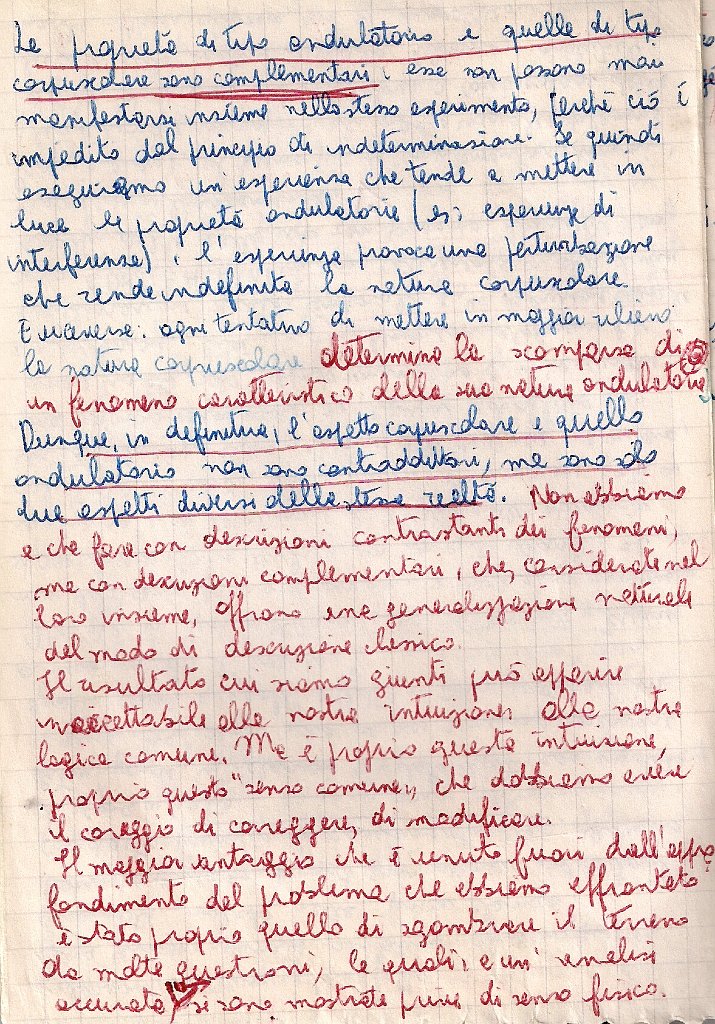 Le proprietà di tipo ondulatorio e quelle di tipo
corpuscolare sono complementari: esse non possono mai
manifestarsi insieme nello stesso esperimento, perché ciò è
impedito dal principio di indeterminazione. Se quindi
eseguiamo un'esperienza che tende a mettere in
luce le proprietà ondulatorie (es: esperienze di
interferenza), l'esperienza provoca una perturbazione
che rende indefinita la natura corpuscolare.
E viceversa: ogni tentativo di mettere in maggior rilievo
la natura corpuscolare determina la scomparsa di
un fenomeno caratteristico della sua natura ondulatoria
Dunque, in definitiva, l'aspetto corpuscolare e quello
ondulatorio non sono contraddittori, ma sono solo
due aspetti diversi della stessa realtà. Non abbiamo
a che fare con descrizioni contrastanti dei fenomeni,
ma con descrizioni complementari, che, considerate nel
loro insieme, offrono una generalizzazione naturale
del modo di descrizione classico.
Il risultato cui siamo giunti può apparire
inaccettabile alla nostra intuizione, alla nostra
logica comune. Ma è proprio questa intuizione,
proprio questo "senso comune", che dobbiamo avere
il coraggio di correggere, di modificare.
Il maggior vantaggio che è venuto fuori dall'appro
fondimento del problema che abbiamo affrontato
è stato proprio quello di sgombrare il terreno
da molte questioni, le quali, a un'analisi
accurata, si sono mostrate prive di senso fisico.